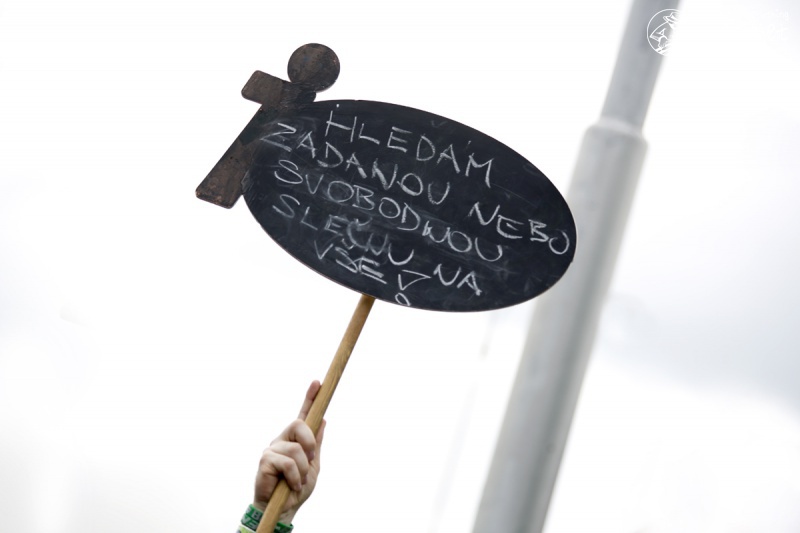 HLEDÁM
ZADANOU NEBO
SVOBODNOU
SLEČNU NA
VŠE!